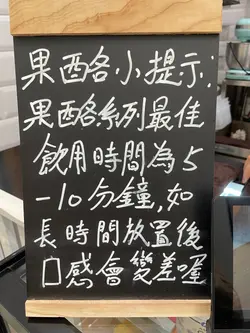 果酪小提示:
果酪系列最佳
飲用時間為5
-10分鐘,如
長時間放置後
口感會變差喔